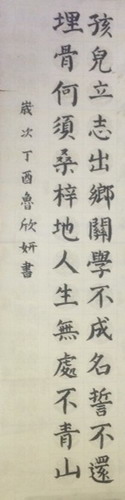 孩兒立志出鄉關學不成名誓不還
埋骨何須桑梓地人生無處不青山
歲次丁酉魯欣妍書